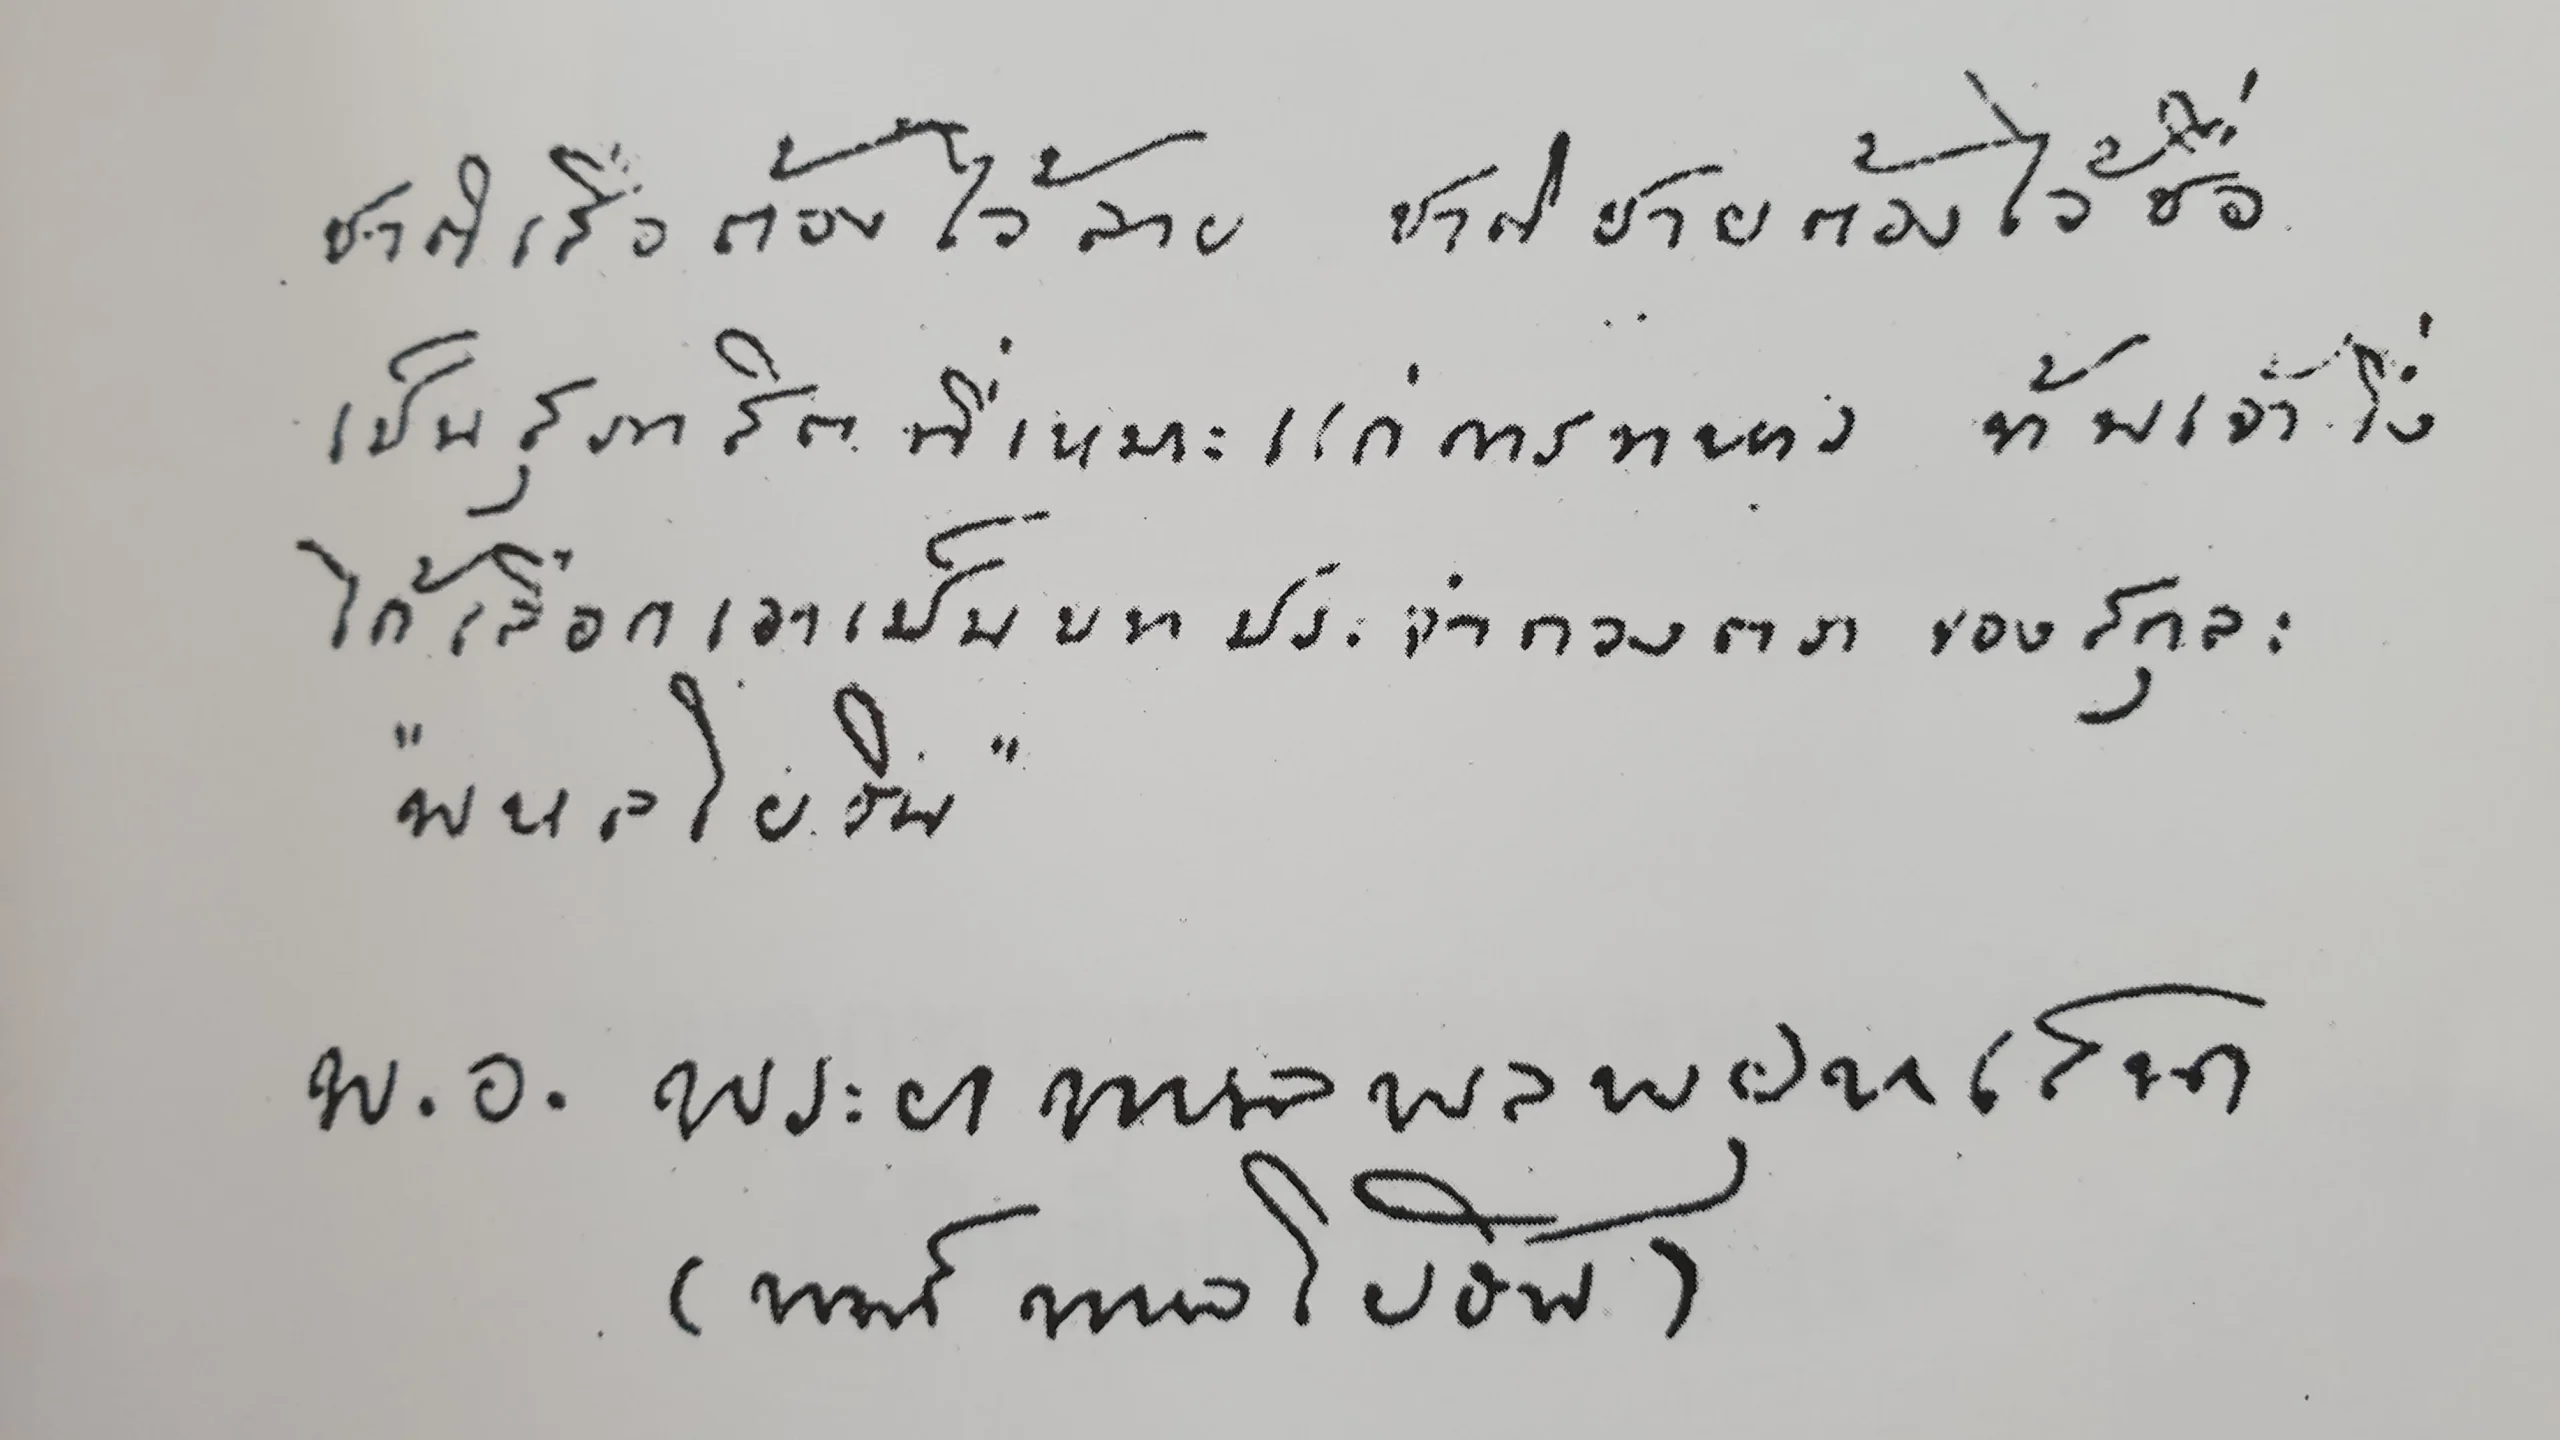 ชาติเสือต้องไว้ลาย ชาติชายต้องไว้ชื่อ
เป็นสุภาสิตที่เหมาะแก่การทหาร ข้าพเจ้าจึ่ง
ได้เลือกเอาเป็นบทประจำดวงตรา ของสกุล
"พหลโยธิน"
พ.อ. พระยาพหลพลพยุหเสนา
(พจน์ พหลโยธิน)